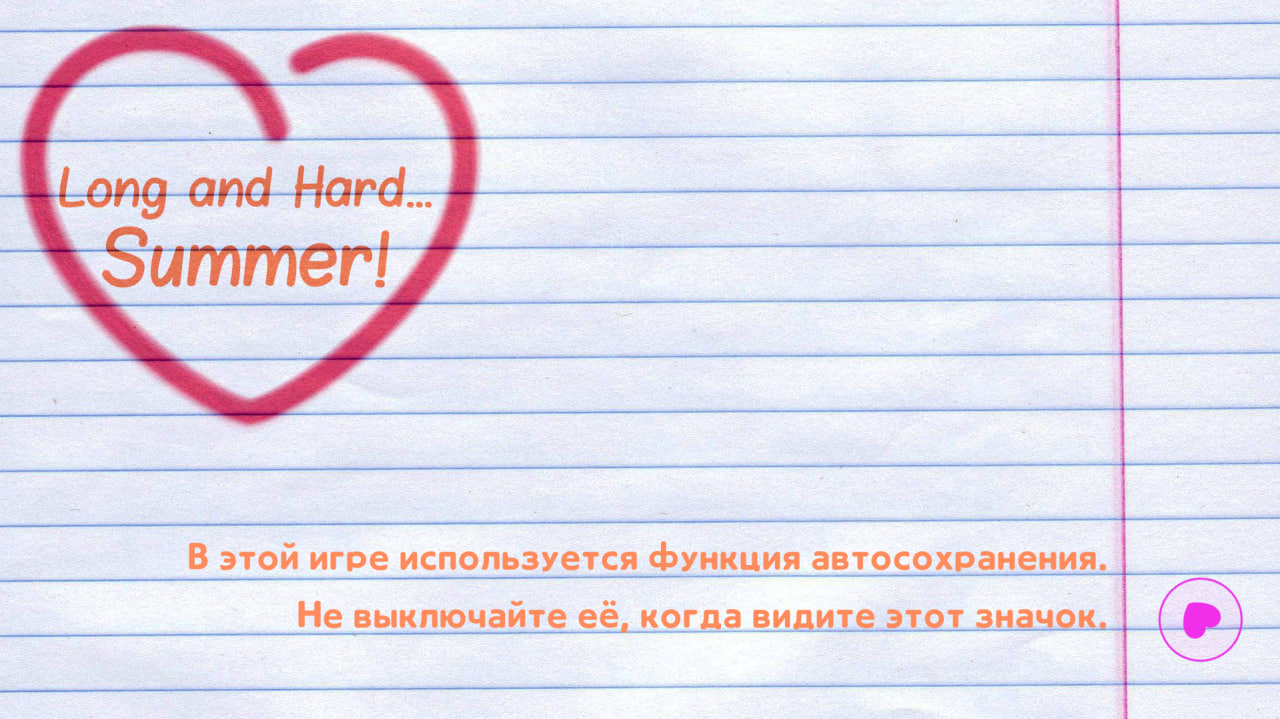 Long and Hard...
Summer!
В этой игре используется функция автосохранения.
Не выключайте её, когда видите этот значок.